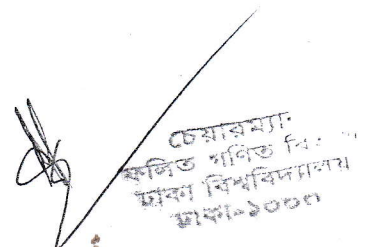 চেয়ারম্যা
ফলিত গণিত বি
ঢাকা বিশ্ববিদ্যালয়
ঢাকা-১০০০